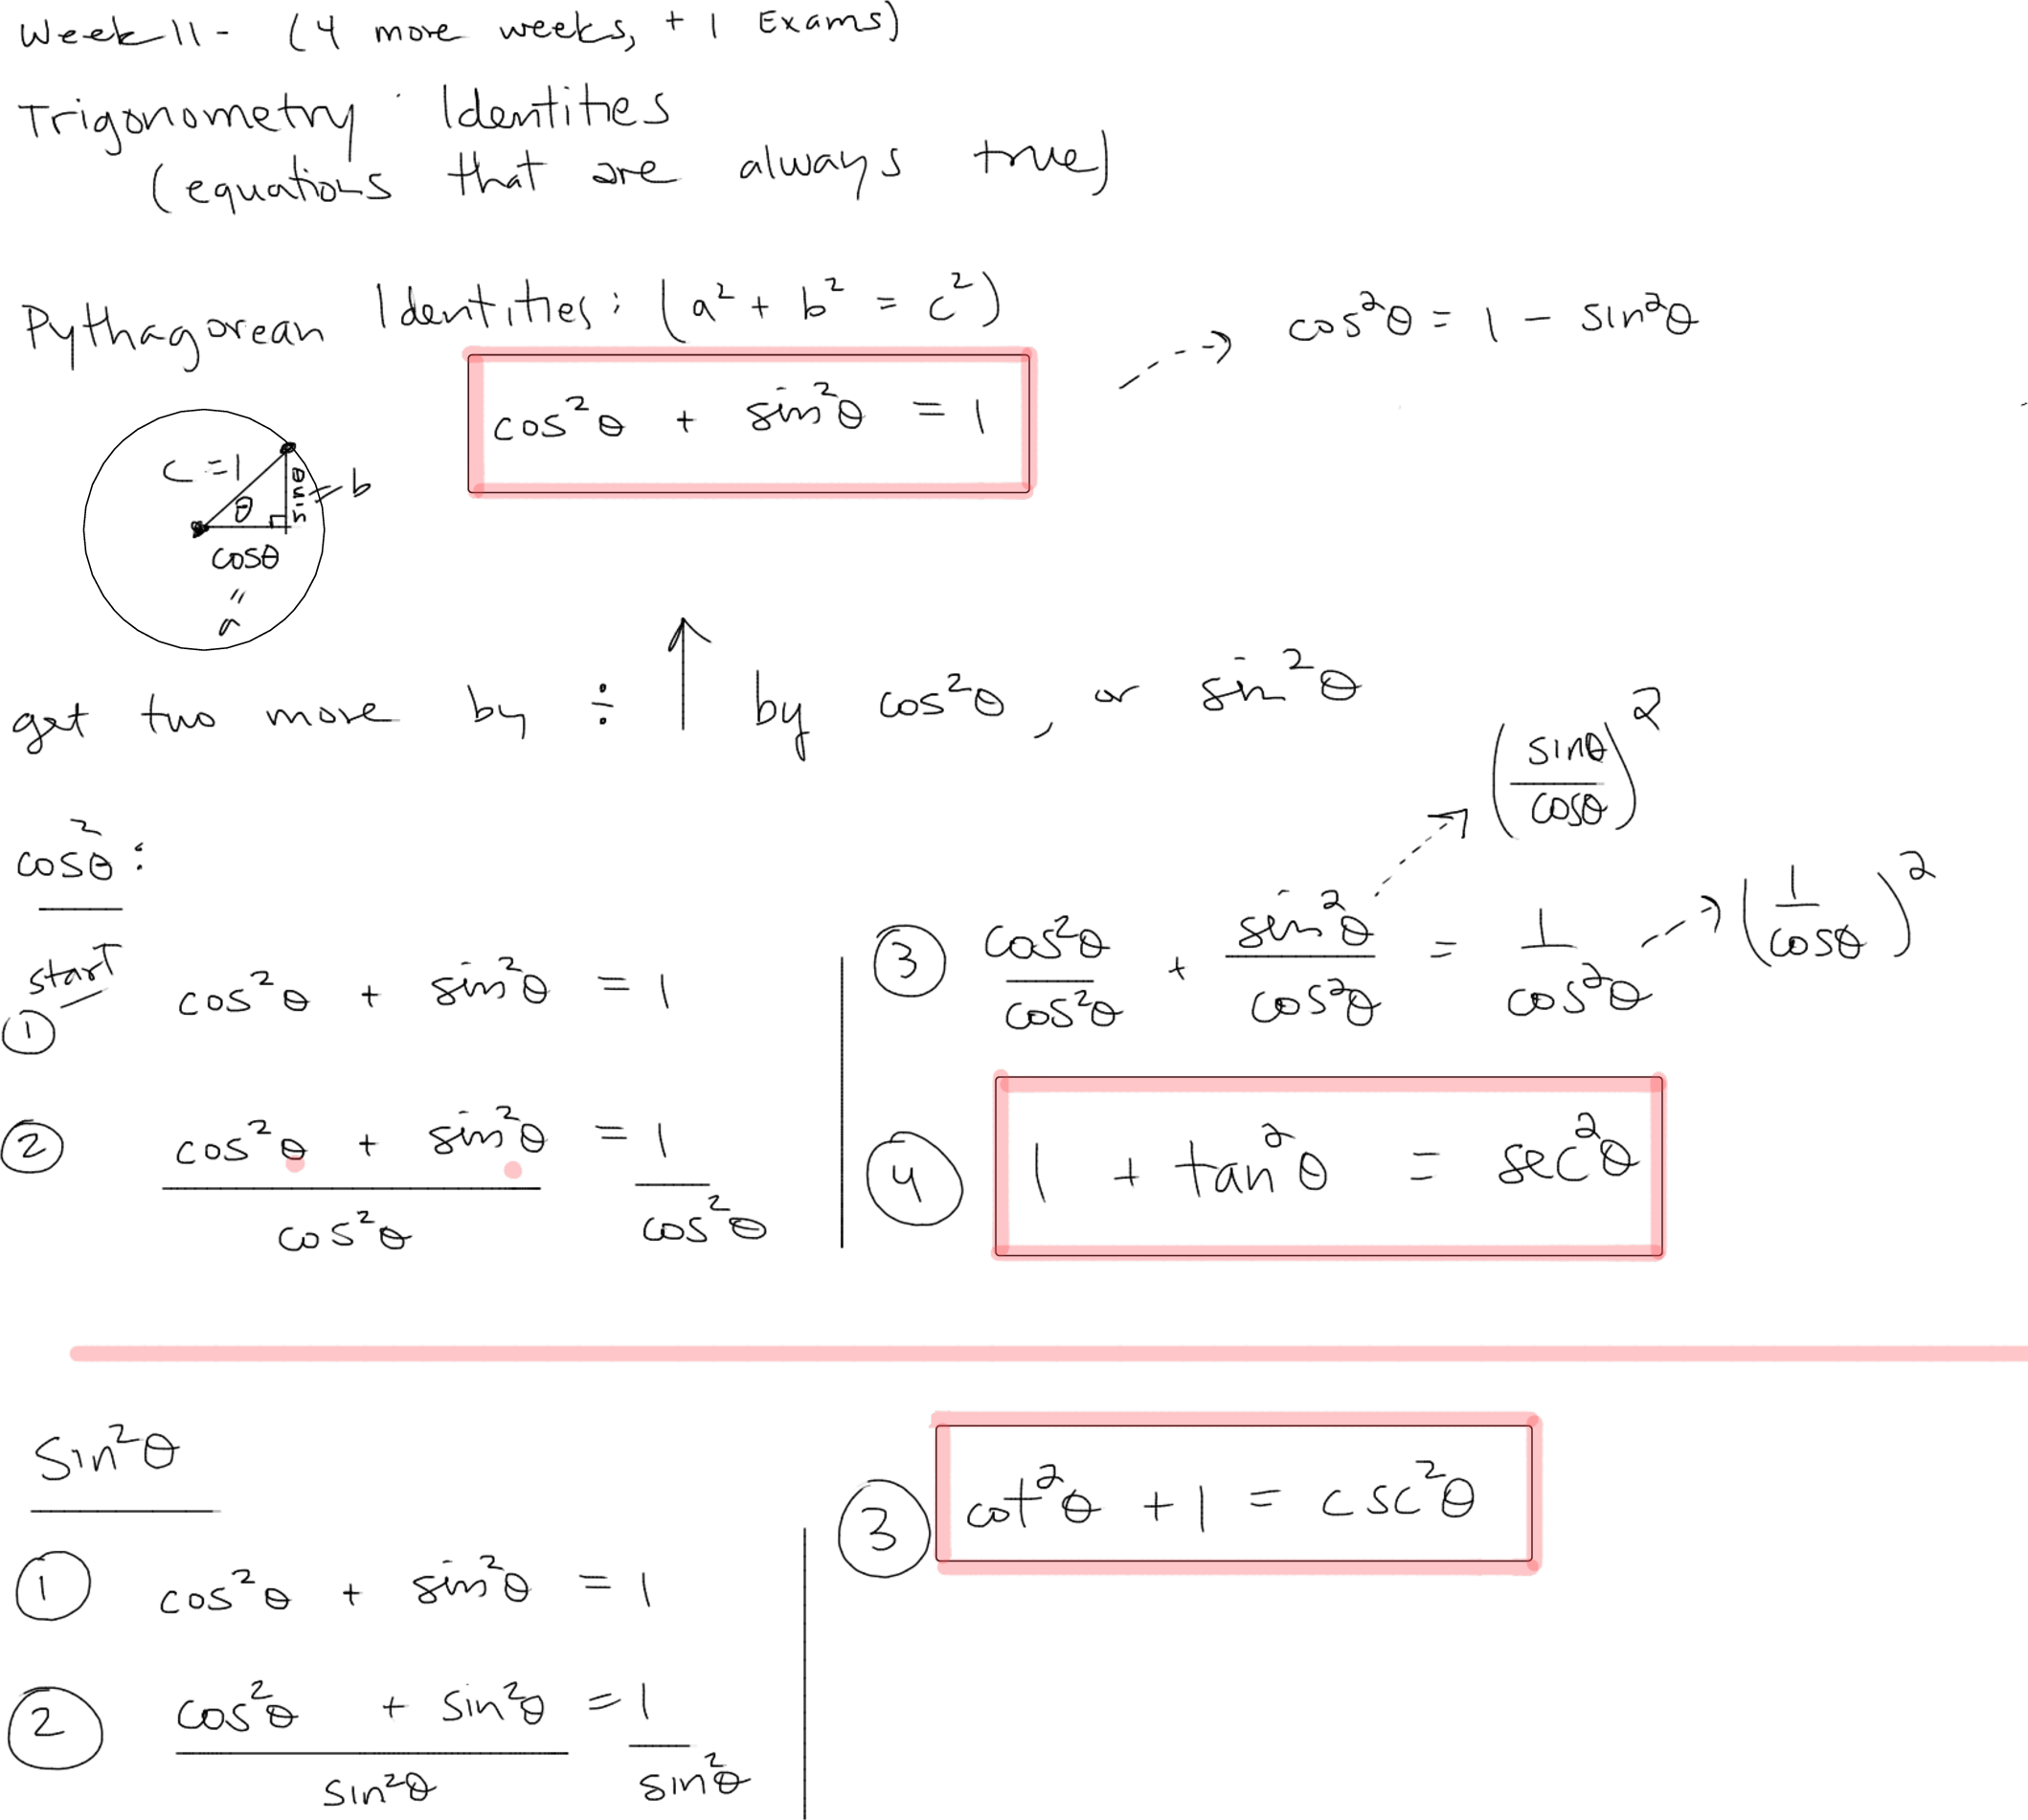 Week 11 - (4 more weeks, + 1 Exams)
Trigonometry Identities
(equations that are always true)
Pythagorean Identities: (a² + b² = c²)
cos²θ + sin²θ = 1
cos²θ = 1 - sin²θ
c = 1
θ
sinθ = b
cosθ
=
a
get two more by ÷ ↑ by cos²θ, or sin²θ
cos²θ:
start
① cos²θ + sin²θ = 1
② (cos²θ + sin²θ)/cos²θ = 1/cos²θ
③ cos²θ/cos²θ + sin²θ/cos²θ = 1/cos²θ
(sinθ/cosθ)²
(1/cosθ)²
④ 1 + tan²θ = sec²θ
Sin²θ
① cos²θ + sin²θ = 1
② (cos²θ + sin²θ)/sin²θ = 1/sin²θ
③ cot²θ + 1 = csc²θ